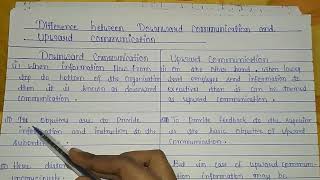 Difference between Downward communication and
Upward communication
Downward Communication
i) When information flow from
top to bottom of the organisation
then it is known as downward
communication.
ii) The objective are to provide
information and instruction to the
subordinates
iii) Here
Upward Communication
i) On the other hand, when lower
level employs send information to
executives then it can be termed
as upward communication.
ii) To provide feedback to the superior
is the basic objective of upward
communication.
iii) But in case of upward communi-
information may be